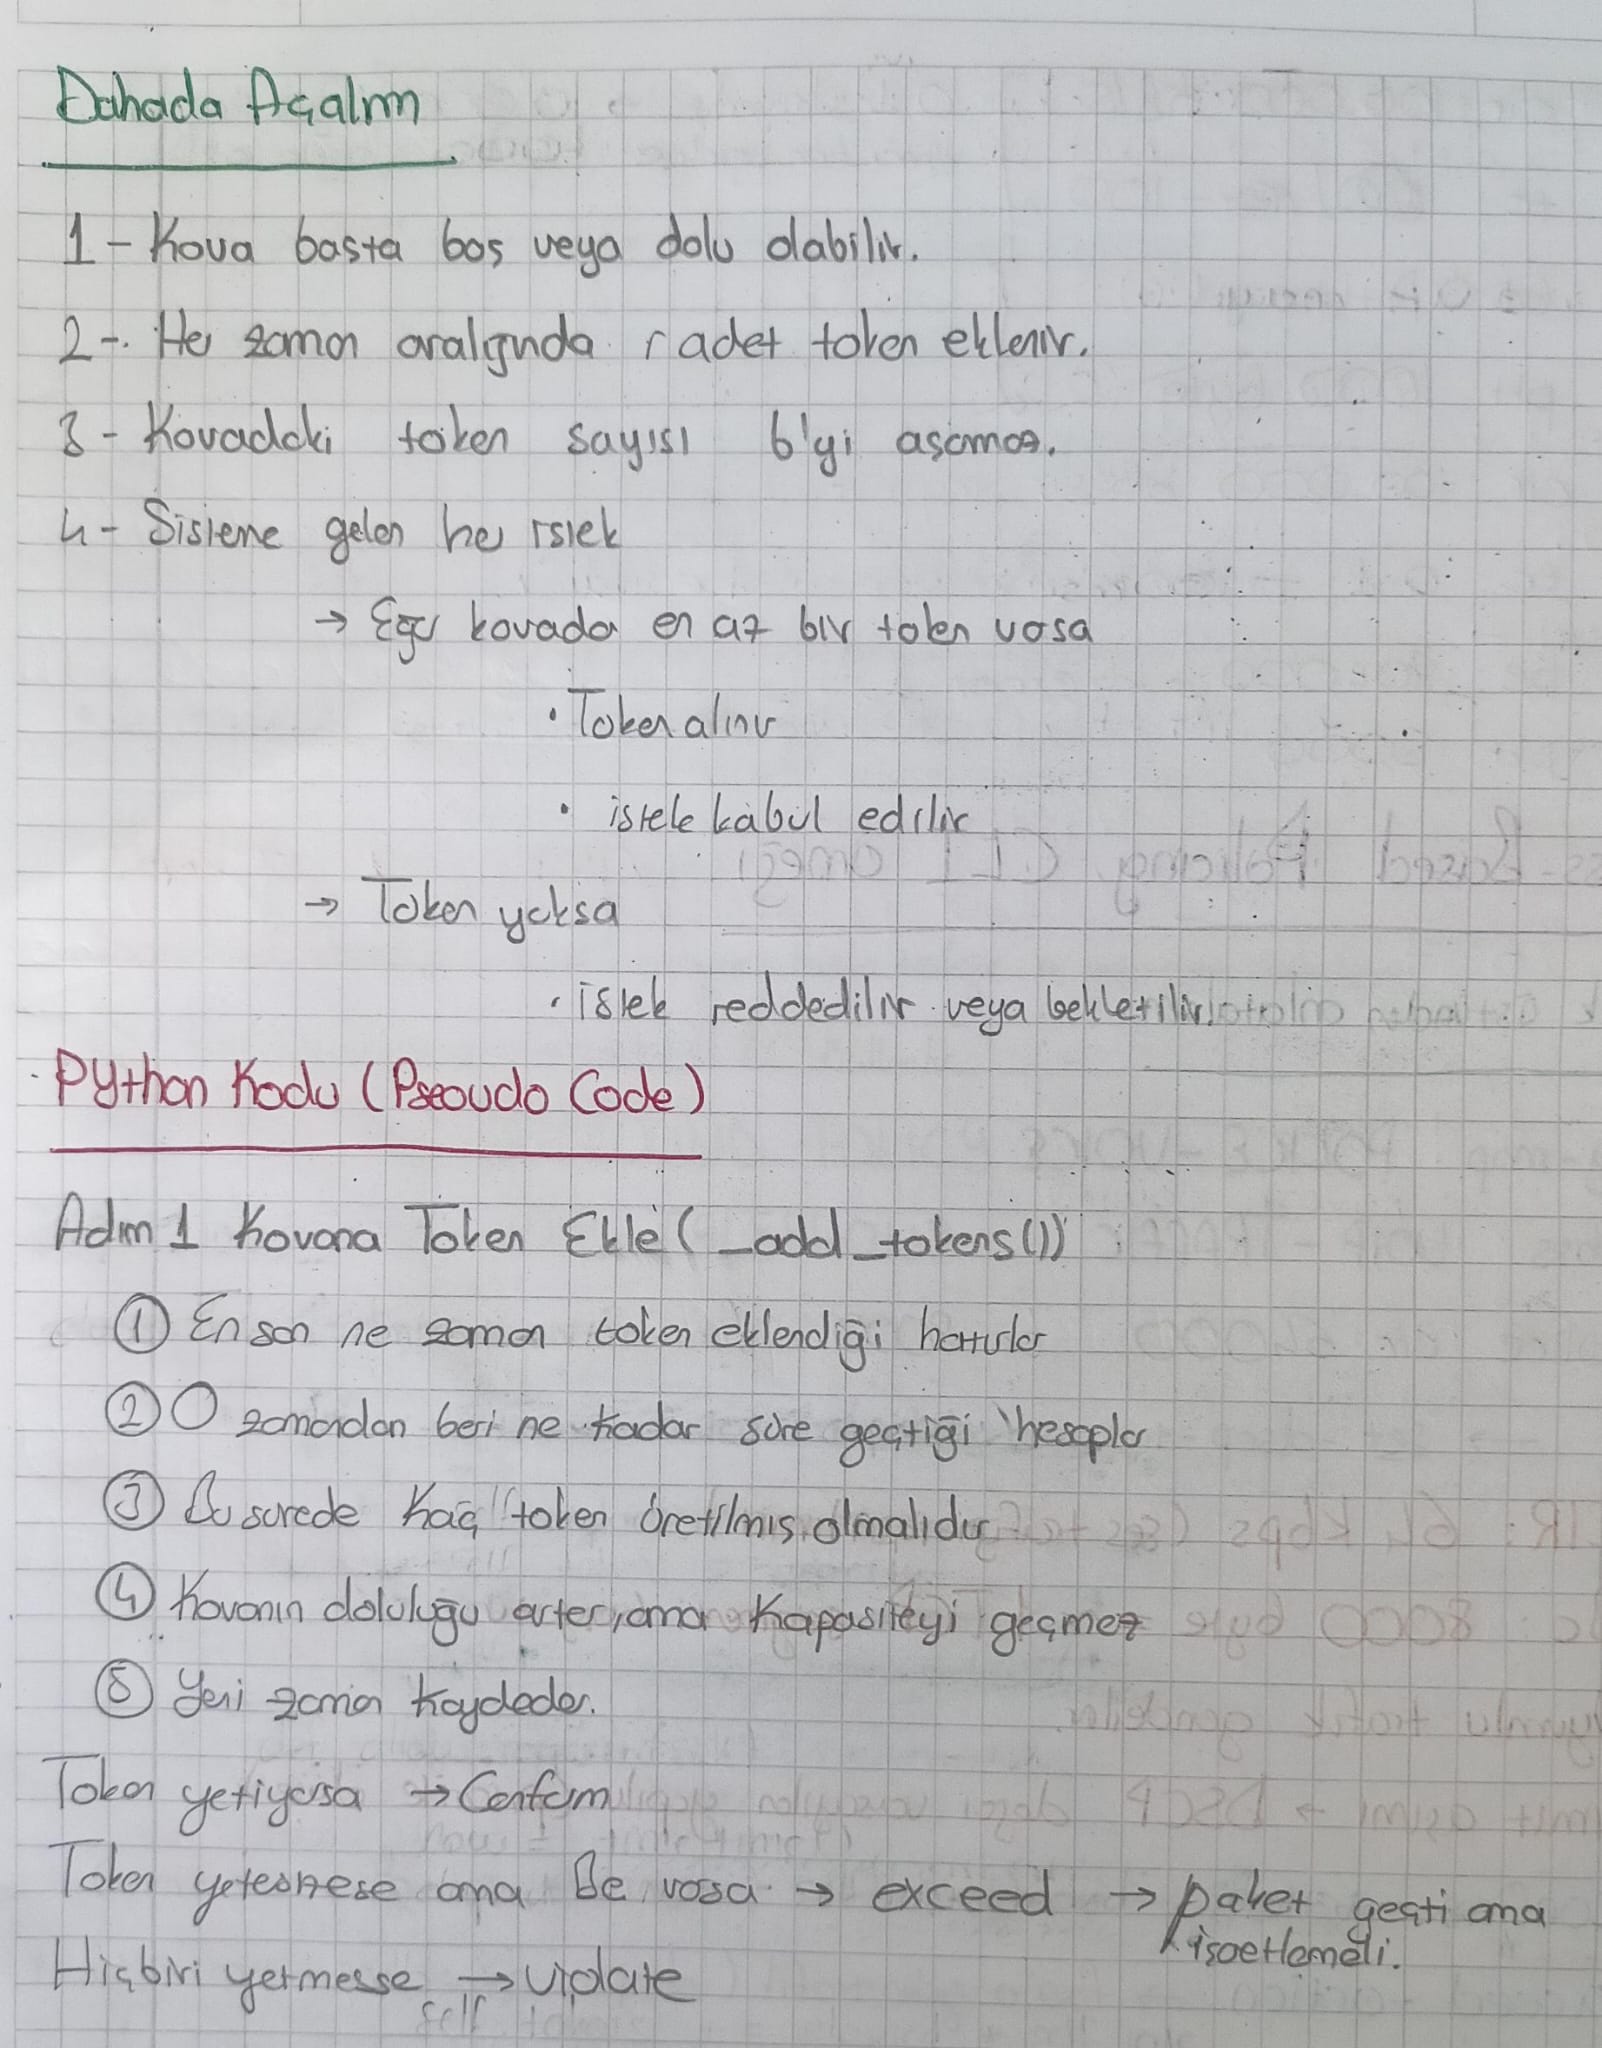 Dahada Açalım
1 - Kova basta bos veya dolu olabilir.
2 - Her zaman aralıgında r adet token eklenir.
3 - Kovadaki token sayısı b'yi aşamaz.
4 - Sisteme gelen her istek
→ Eğer kovada en az bir token varsa
• Token alınır
• istek kabul edilir
→ Token yoksa
• istek reddedilir veya bekletilir.
Python Kodu (Pseoudo Code)
Adım 1 Kovana Token Ekle (_add_tokens())
① En son ne zaman token eklendiği hatırlar
② O zamandan beri ne kadar süre geçtiği hesaplar
③ Bu surede kaç token üretilmis olmalıdır
④ Kovanın doluluğu artar, ama kapasiteyi geçmez
⑤ Yeni zaman kaydeder.
Token yetiyorsa → Conform
Token yetmezse ama Be varsa → exceed → paket geçti ama
işaetlemeli.
Hiçbiri yetmesse → violate